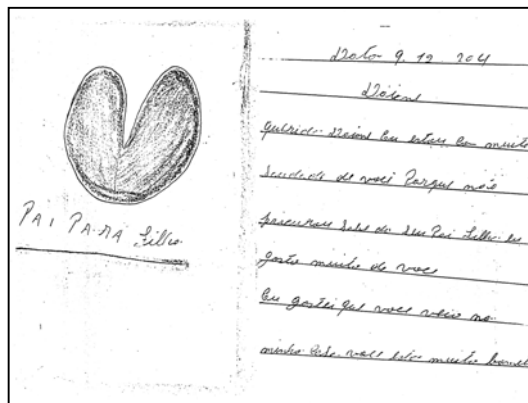 PAI PARA Filho
Data 9.12.2011
querido Eu estou com muito
Saudade de você Porque não
procurou Saber do Seu Pai Filho eu
gosto muito de voce
Eu gostei que voce veio na
minha Casa. voce esta muito